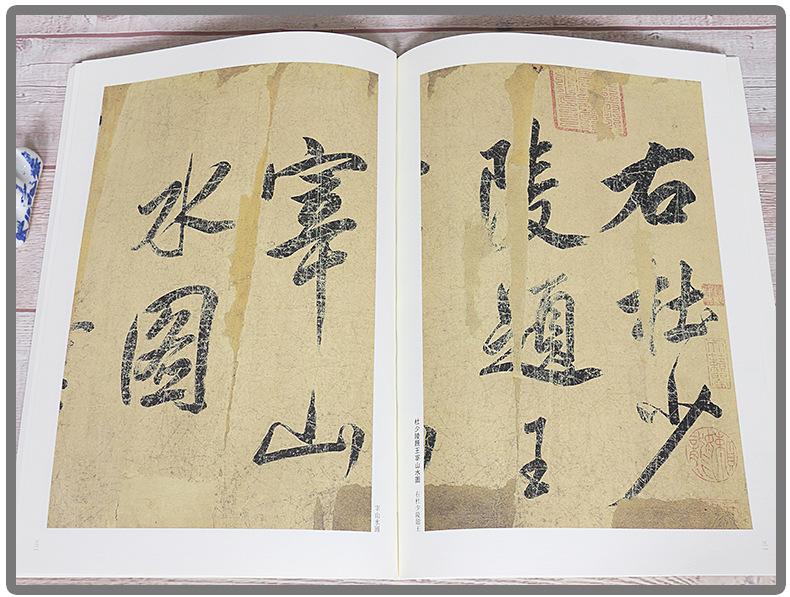 右杜少
陵題王
宰山
水圖
杜少陵題王宰山水圖 右杜少陵題王
宰山水圖